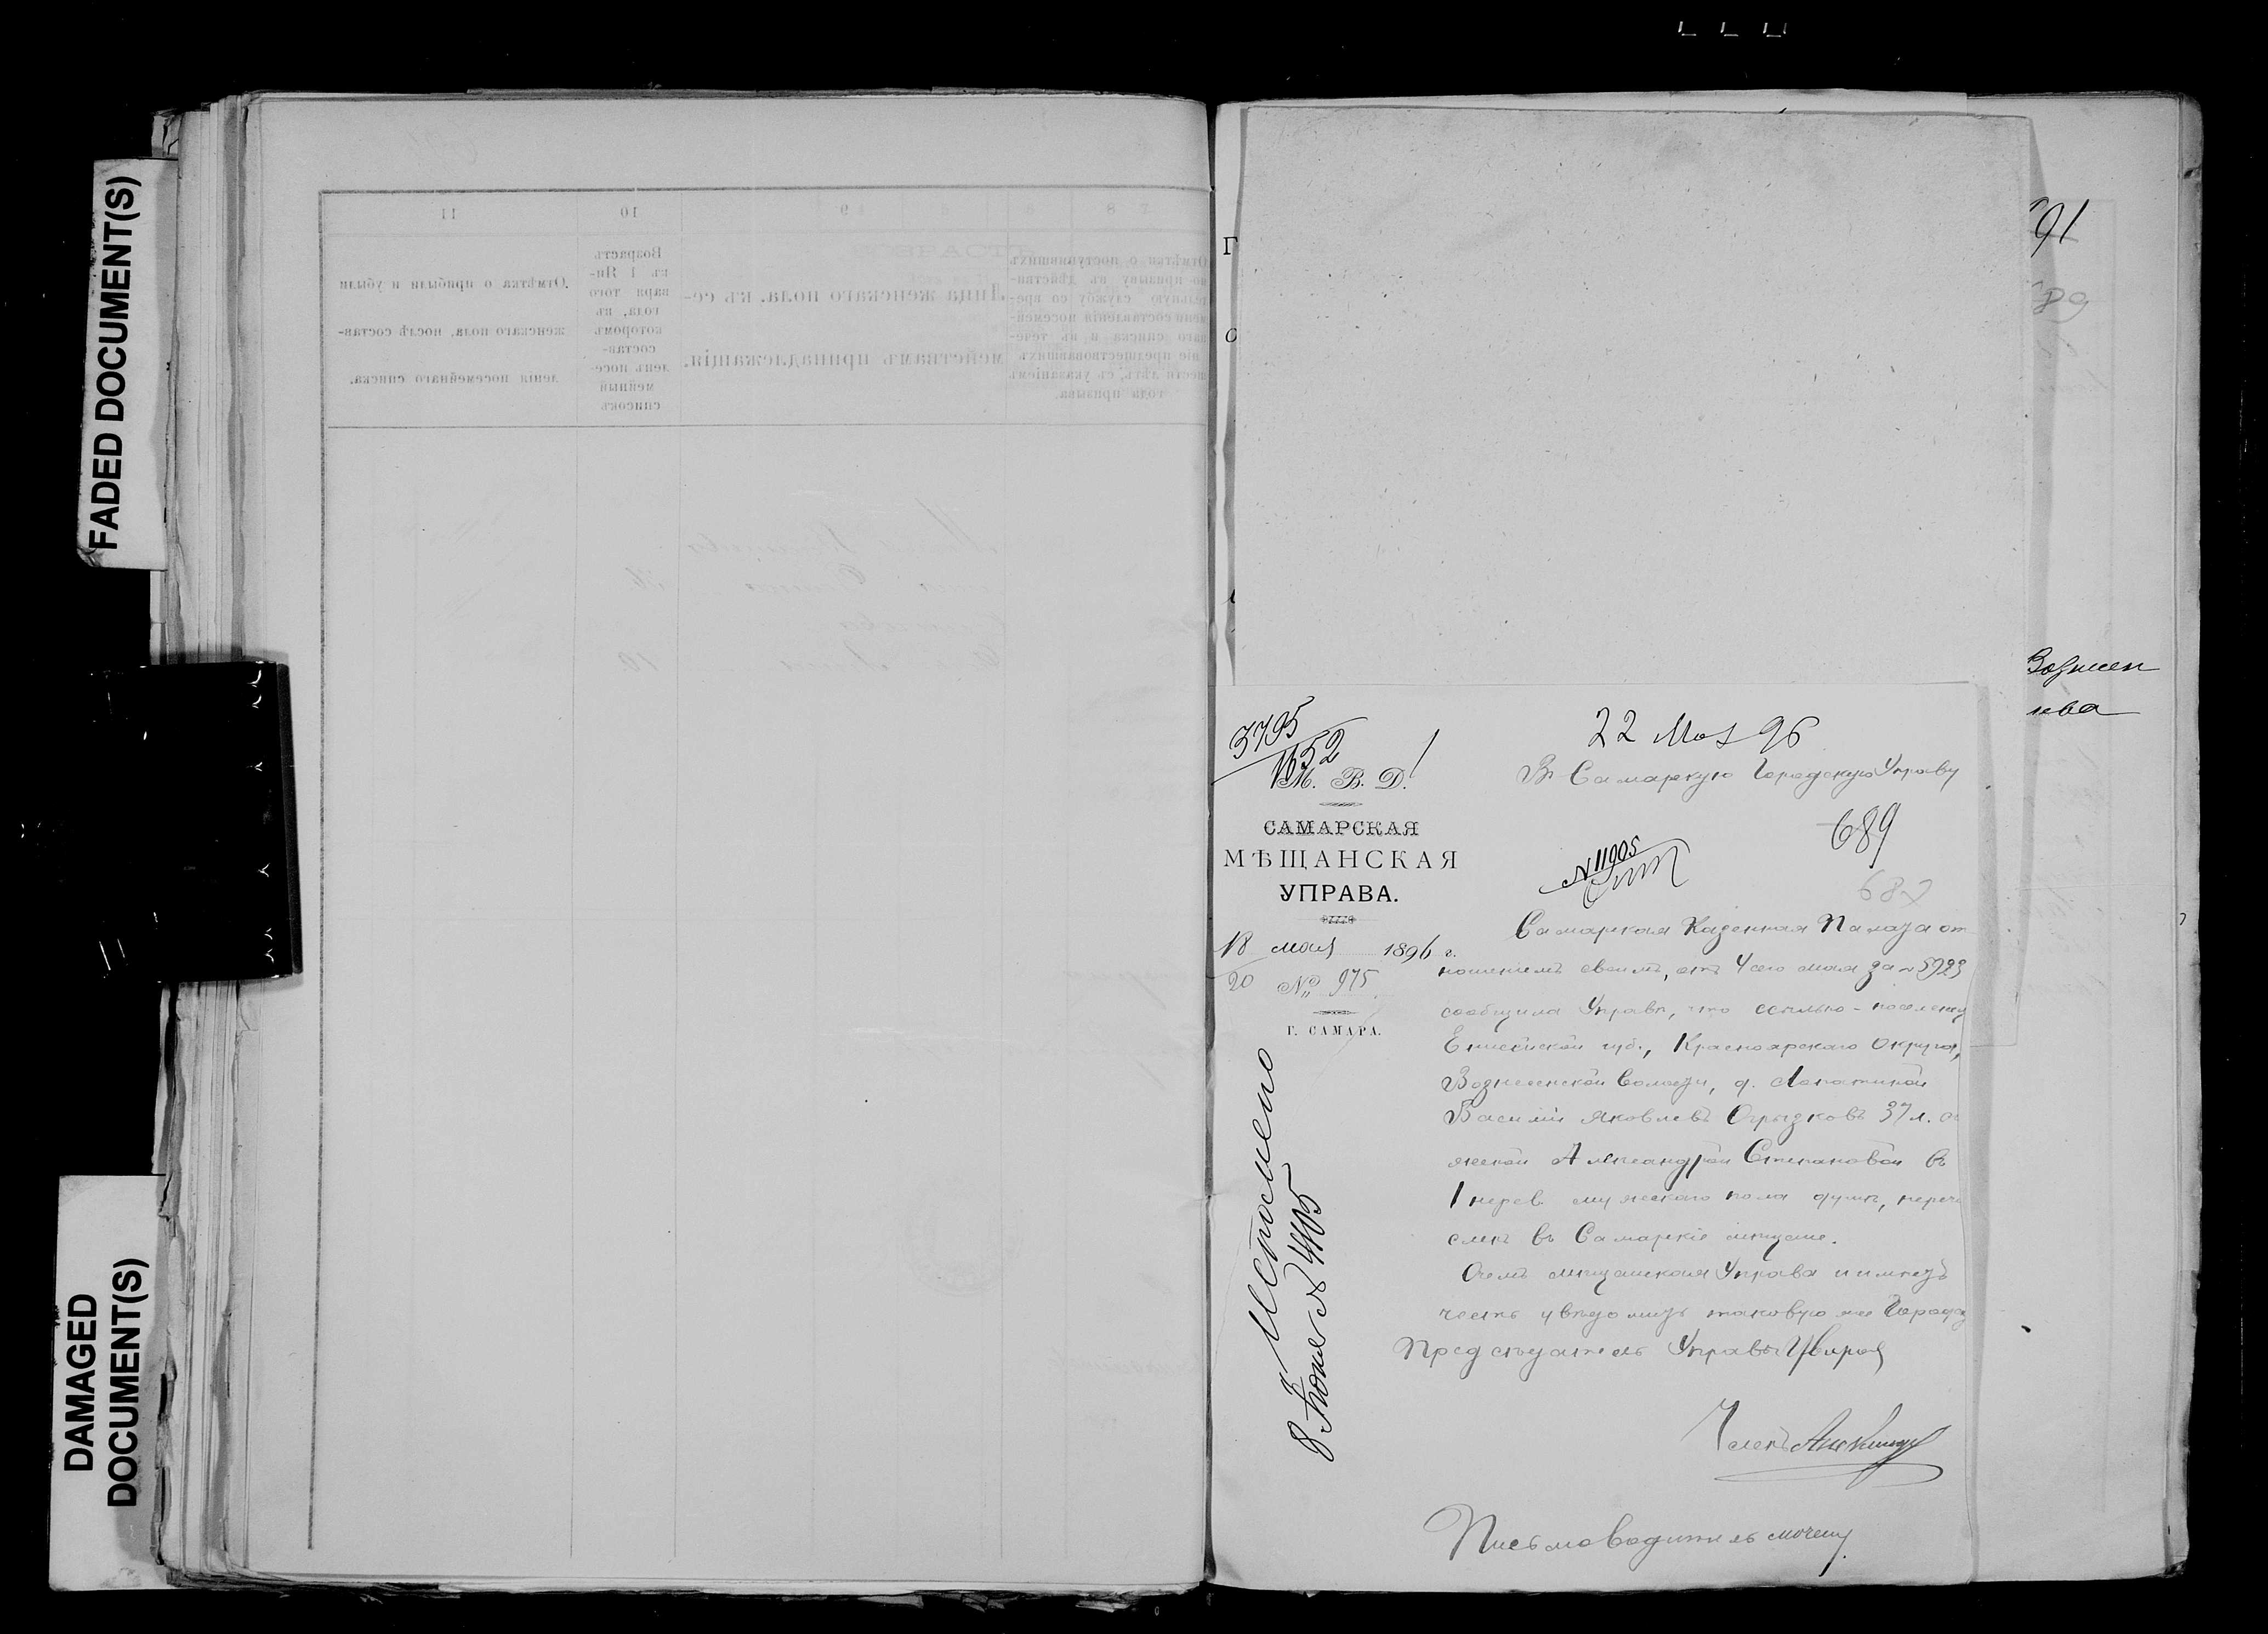 FADED DOCUMENT(S)
DAMAGED
DOCUMENT(S)
11
10
9
8
Отмѣтка о прибыли и убыли
женскаго пола, послѣ состав-
ленія посемейнаго списка.
Возрастъ
къ 1 Ян-
варя того
года, въ
которомъ
состав-
ленъ посе-
мейный
списокъ
Лица женскаго пола, къ се-
мействамъ принадлежащія.
Отмѣтка о поступившихъ
по призыву въ дѣйстви-
тельную службу со вре-
мени составленія посемей-
наго списка и въ тече-
ніе предшествовавшихъ
шести лѣтъ, съ указаніемъ
года призыва.
91
89
3795
1652
М. В. Д.
САМАРСКАЯ
МѢЩАНСКАЯ
УПРАВА.
18 мая 1896 г.
20 № 975
Г. САМАРА.
22 Мая 96
Въ Самарскую Городскую Управу
689
№ 11905
Самарская Казенная Палата от
ношеніемъ своимъ, отъ 4 сего мая за №
сообщила Управѣ, что ссыльно-поселенец
Енисейской губ., Красноярскаго Округа,
Вознесенской Волости, д. Лопатиной
Василій Яковлевъ Огрызковъ 37 л. съ
женой Александрой Степановой въ
1 нерев. мужескаго пола душѣ, перечи
сленъ въ Самарскіе мѣщане.
О чемъ мѣщанская Управа и имѣетъ
честь увѣдомить таковую же Городск
Предсѣдатель Управы
Членъ
Письмоводитель
8 Іюня № 4405